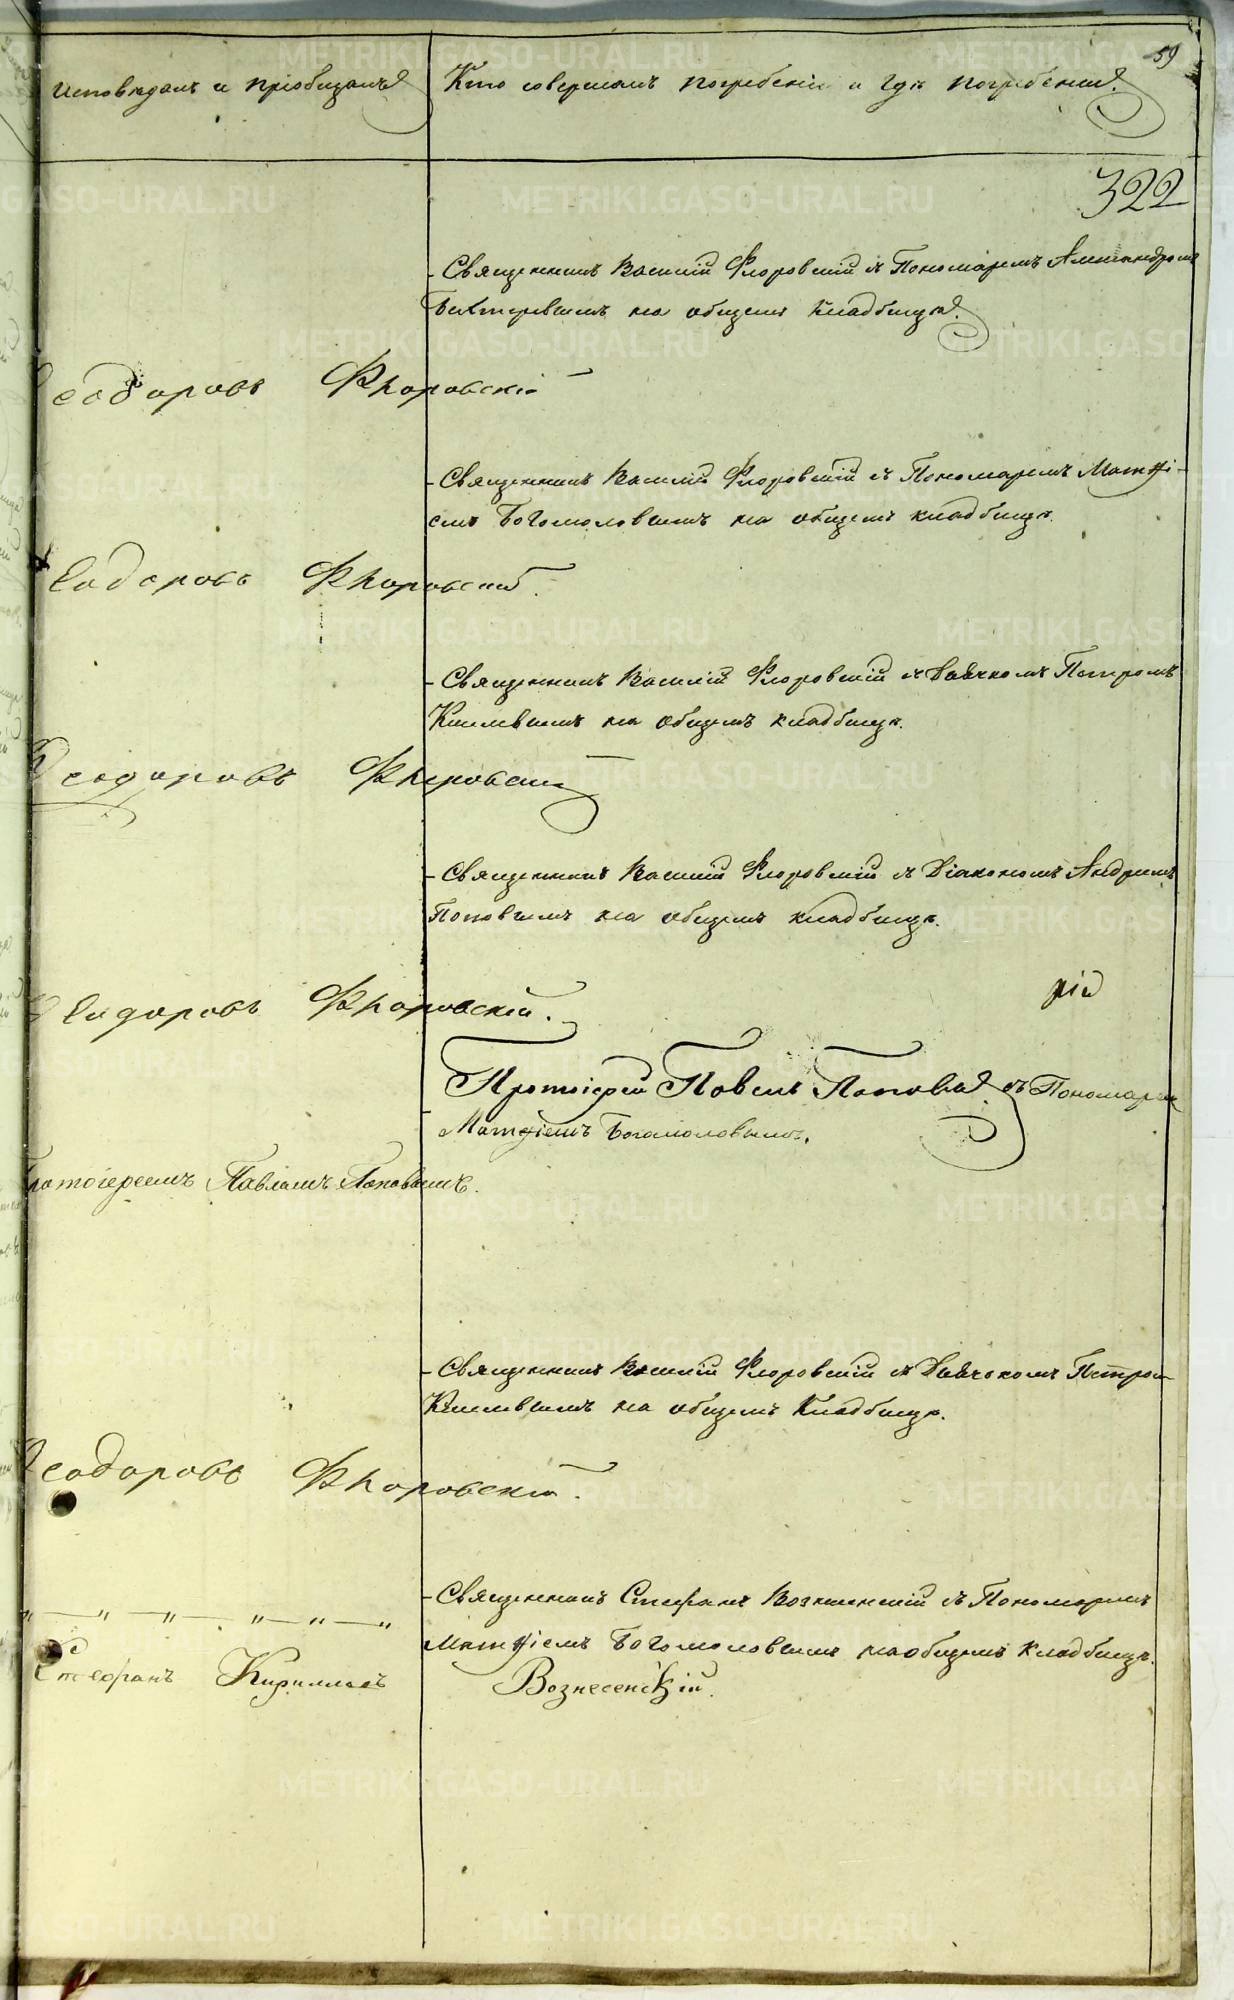 59
исповѣдалъ и пріобщалъ
Кто совершалъ погребеніе и гдѣ погребены.
322
Священникъ Василій Флоровскій съ Пономаремъ Александромъ
Бехтеревымъ на общемъ кладбищѣ.
Ѳеодоровъ Флоровскій
Священникъ Василій Флоровскій съ Пономаремъ Матѳі-
емъ Богомоловымъ на общемъ кладбищѣ.
Ѳеодоровъ Флоровскій.
Священникъ Василій Флоровскій съ Дьячкомъ Петромъ
на общемъ кладбищѣ.
Ѳеодоровъ Флоровскій
Священникъ Василій Флоровскій съ Діакономъ Андреемъ
Поповымъ на общемъ кладбищѣ.
рій
Ѳеодоровъ Флоровскій.
Протоіерей Павелъ Поповъ съ Пономаремъ
Матѳіемъ Богомоловымъ.
Протоіереемъ Павломъ Поповымъ.
Священникъ Василій Флоровскій съ Дьячкомъ Петромъ
на общемъ кладбищѣ.
Ѳеодоровъ Флоровскій.
Священникъ Стефанъ Вознесенскій съ Пономаремъ
Матѳіемъ Богомоловымъ на общемъ кладбищѣ.
Стефанъ Кирилловъ Вознесенскій.
METRIKI.GASO-URAL.RU